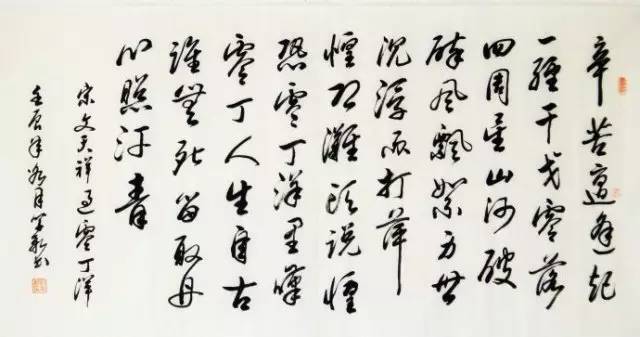 辛苦遭逢起
一經干戈零落
四周星山河破
碎風飄絮身世
沉浮雨打萍
惶恐灘頭說惶
恐零丁洋里嘆
零丁人生自古
誰無死留取丹
心照汗青
宋文天祥過零丁洋
壬辰年月書